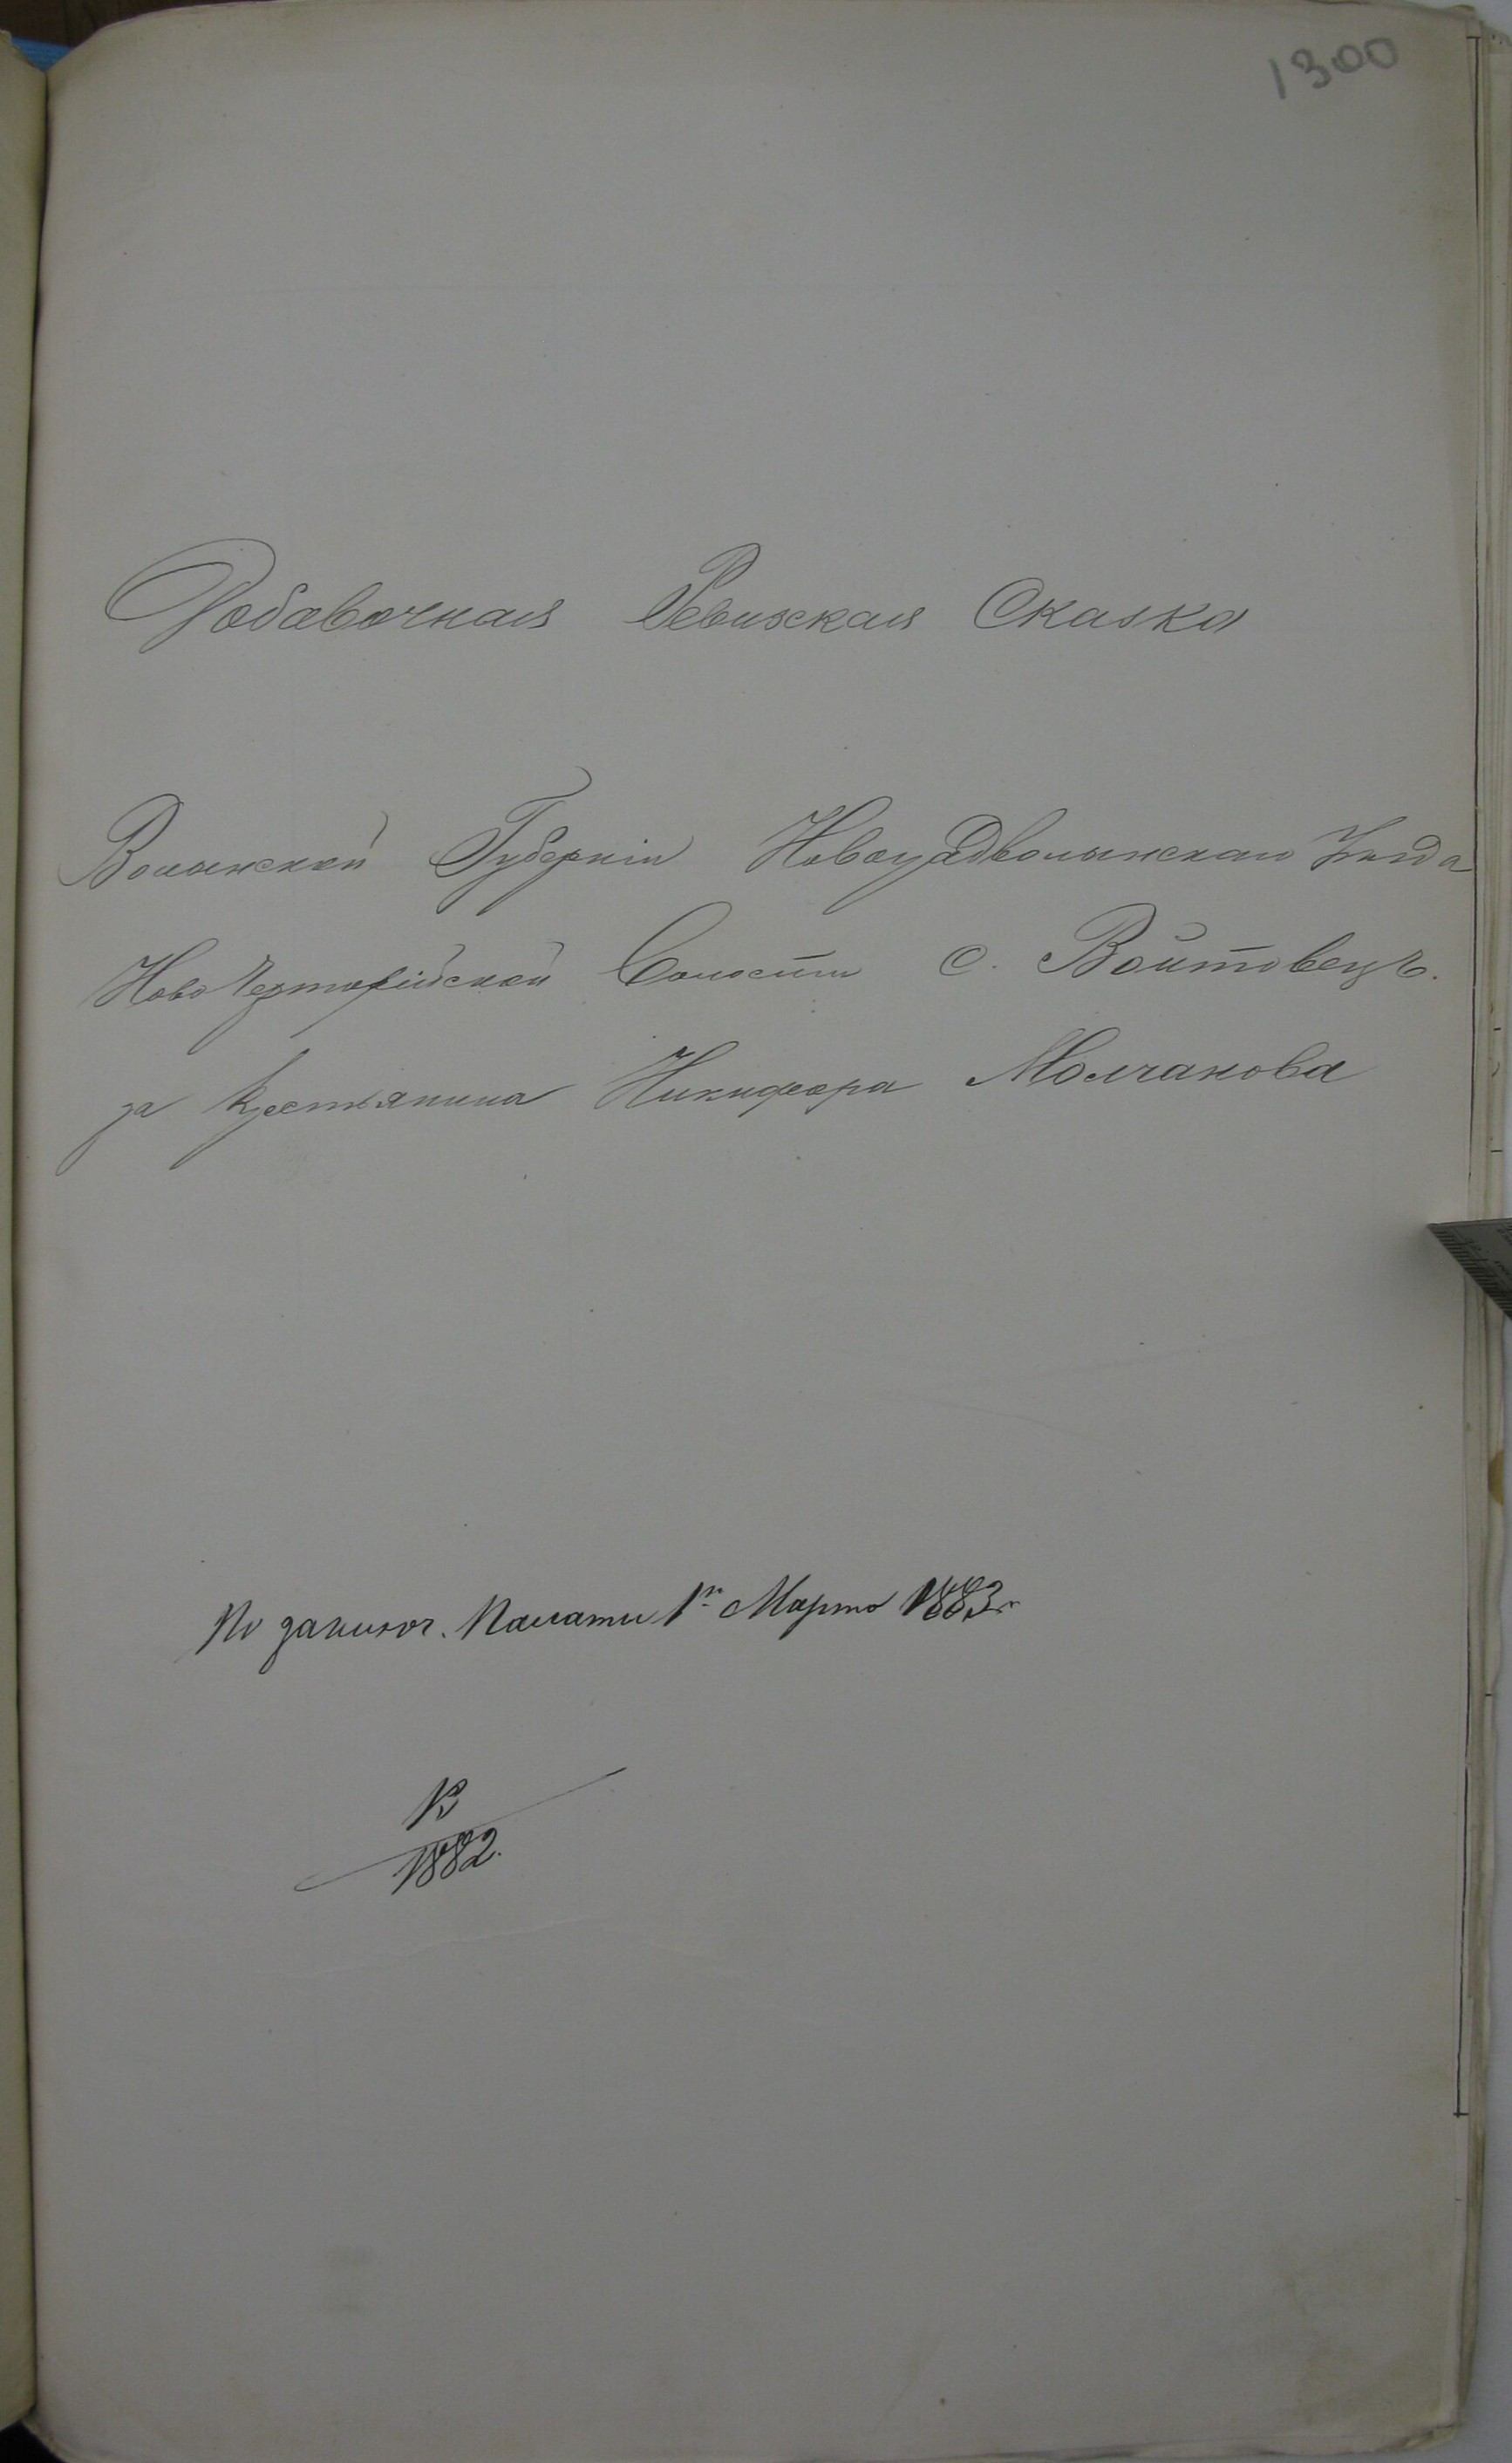 1300
Добавочная Ревизская Сказка
Волынской Губерніи Новоградволынскаго Уѣзда
Ново Черторійской Волости с. Войтовецъ.
за крестьянина Никифора Молчанова
По заключ. Палаты 1го Марта 1883 г.
13
1882.